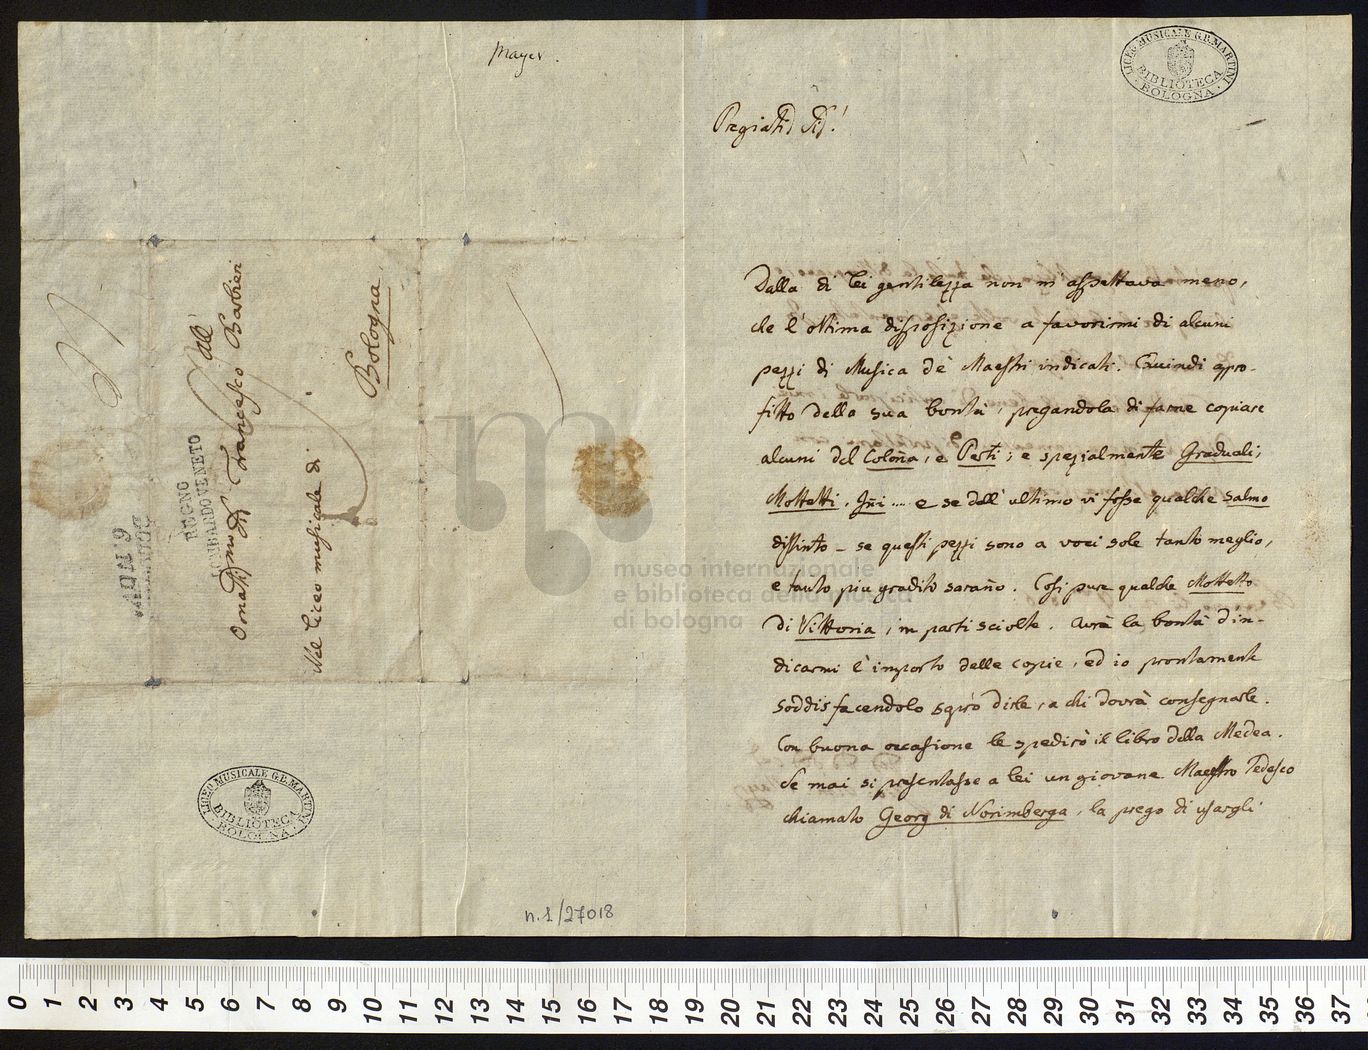 Mayer.
All'
Ornatissimo Sigr Francesco Barbieri
Nel Liceo musicale di
Bologna.
REGNO
LOMBARDO VENETO
9 NOV.
LICEO MUSICALE G.B. MARTINI
BIBLIOTECA
BOLOGNA
n. 1/27018
LICEO MUSICALE G.B. MARTINI
BIBLIOTECA
BOLOGNA
Pregiatis Sig.!
Dalla di Lei gentilezza non m'aspettava meno,
che l'ottima disposizione a favorirmi di alcuni
pezzi di Musica de' Maestri indicati. Quindi apro-
fitto della sua bontà, pregandola di farne copiare
alcuni del Coloña, e Perti; e spezialmente Graduali,
Mottetti, Iñi .... e se dell'ultimo vi fosse qualche Salmo
distinto – se questi pezzi sono a voci sole tanto meglio,
e tanto piu graditi saraño. Cosi pure qualche Mottetto
di Vittoria, in parti sciolte. Avrà la bontà d'in-
dicarmi l'importo delle copie, ed io prontamente
soddisfacendolo dirle, a chi dovrà consegnarle.
Con buona occasione le spedirò il libro della Medea.
Se mai si presentasse a Lei un giovane Maestro Tedesco
chiamato Georg di Norimberga, la prego di usargli
museo internazionale
e biblioteca della musica
di bologna
0 1 2 3 4 5 6 7 8 9 10 11 12 13 14 15 16 17 18 19 20 21 22 23 24 25 26 27 28 29 30 31 32 33 34 35 36 37